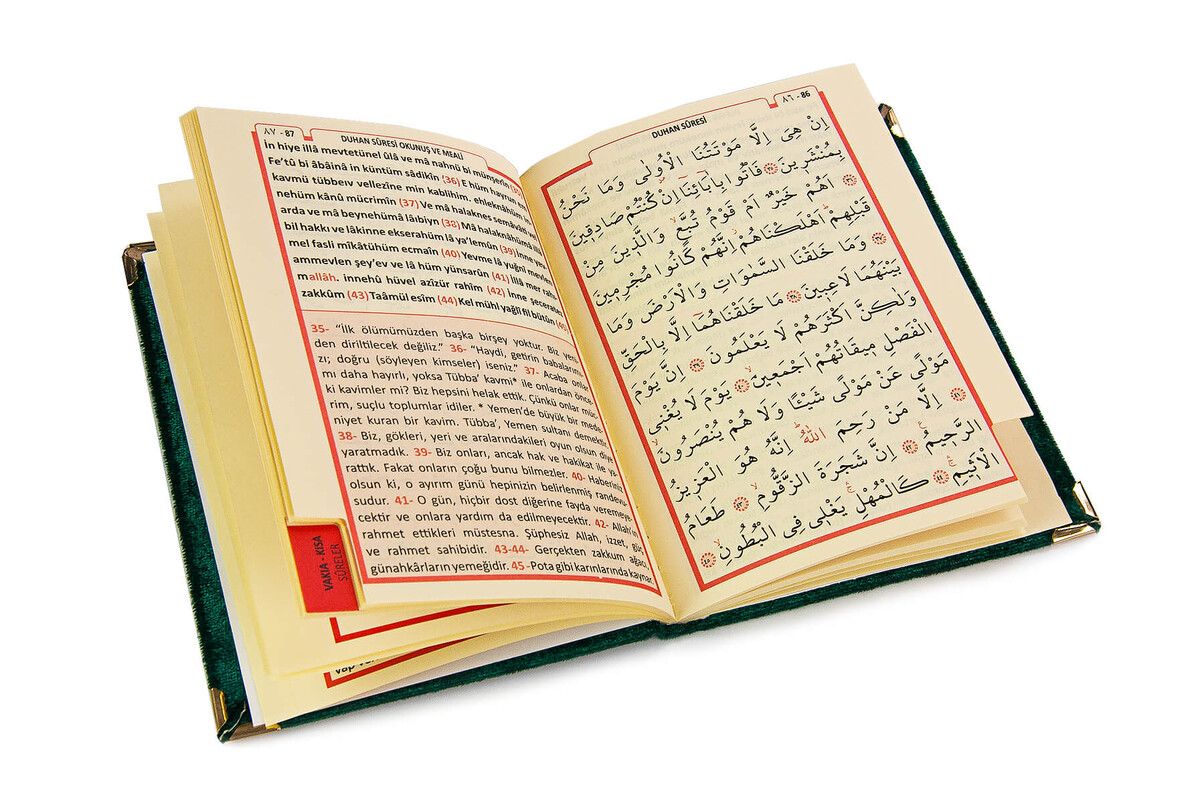 ٨٦ - 86
DUHAN SÛRESİ
اِنْ هِيَ اِلَّا مَوْتَتُنَا الْاُولٰى وَمَا نَحْنُ
بِمُنْشَرٖينَ ﴿٣٥﴾ فَاْتُوا بِاٰبَٓائِنَٓا اِنْ كُنْتُمْ صَادِقٖينَ
﴿٣٦﴾ اَهُمْ خَيْرٌ اَمْ قَوْمُ تُبَّعٍ وَالَّذٖينَ مِنْ
قَبْلِهِمْ اَهْلَكْنَاهُمْ اِنَّهُمْ كَانُوا مُجْرِمٖينَ
﴿٣٧﴾ وَمَا خَلَقْنَا السَّمٰوَاتِ وَالْاَرْضَ وَمَا
بَيْنَهُمَا لَاعِبٖينَ ﴿٣٨﴾ مَا خَلَقْنَاهُمَٓا اِلَّا بِالْحَقِّ
وَلٰكِنَّ اَكْثَرَهُمْ لَا يَعْلَمُونَ ﴿٣٩﴾ اِنَّ يَوْمَ
الْفَصْلِ مٖيقَاتُهُمْ اَجْمَعٖينَ ﴿٤٠﴾ يَوْمَ لَا يُغْنٖى
مَوْلًى عَنْ مَوْلًى شَيْئًا وَلَا هُمْ يُنْصَرُونَ
﴿٤١﴾ اِلَّا مَنْ رَحِمَ اللّٰهُ اِنَّهُ هُوَ الْعَزٖيزُ
الرَّحٖيمُ ﴿٤٢﴾ اِنَّ شَجَرَةَ الزَّقُّومِ ﴿٤٣﴾ طَعَامُ
الْاَثٖيمِ ﴿٤٤﴾ كَالْمُهْلِ يَغْلٖى فِى الْبُطُونِ ﴿٤٥﴾
٨٧ - 87
DUHAN SÛRESİ OKUNUŞ VE MEALİ
İn hiye illâ mevtetünel ûlâ ve mâ nahnü bi münşerîn (35)
Fe'tû bi âbâinâ in küntüm sâdikîn (36) E hüm hayrun em
kavmü tübbeıv vellezîne min kablihim. ehleknâhüm in
nehüm kânû mücrimîn (37) Ve mâ halaknes semâvâti vel
arda ve mâ beynehümâ lâıbîyn (38) Mâ halaknâhümâ illâ
bil hakkı ve lâkinne ekserahüm lâ ya'lemûn (39) İnne yev
mel fasli mîkâtühüm ecmaîn (40) Yevme lâ yuğnî mevlen
ammevlen şey'ev ve lâ hüm yünsarûn (41) İllâ mer rahı
mallâh. innehû hüvel azîzür rahîm (42) İnne şeceratez
zakkûm (43) Taâmül esîm (44) Kel mühl yağlî fil bütûn (45)
35- "İlk ölümümüzden başka birşey yoktur. Biz yeni
den diriltilecek değiliz." 36- "Haydi, getirin babalarımı
zı; doğru (söyleyen kimseler) iseniz." 37- Acaba onlar
mı daha hayırlı, yoksa Tübba' kavmi* ile onlardan önce
ki kavimler mi? Biz hepsini helak ettik. Çünkü onlar müc
rim, suçlu toplumlar idiler. * Yemen'de büyük bir mede
niyet kuran bir kavim. Tübba', Yemen sultanı demektir.
38- Biz, gökleri, yeri ve aralarındakileri oyun olsun diye
yaratmadık. 39- Biz onları, ancak hak ve hakikat ile ya
rattık. Fakat onların çoğu bunu bilmezler. 40- Haberiniz
olsun ki, o ayırım günü hepinizin belirlenmiş randevu
sudur. 41- O gün, hiçbir dost diğerine fayda veremeye
cektir ve onlara yardım da edilmeyecektir. 42- Allah'ın
rahmet ettikleri müstesna. Şüphesiz Allah, izzet, güç
ve rahmet sahibidir. 43-44- Gerçekten zakkum ağacı,
günahkârların yemeğidir. 45- Pota gibi karınlarında kaynar.
VAKIA - KISA
SÛRELER